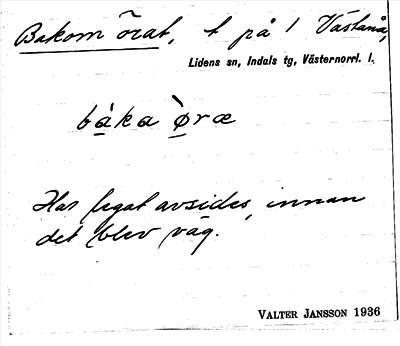 Bakom örat, t på 1 Västanå,
Lidens sn, Indals tg, Västernorrl. l.
bàka ø̀ræ
Har legat avsides, innan
det blev väg.
VALTER JANSSON 1936